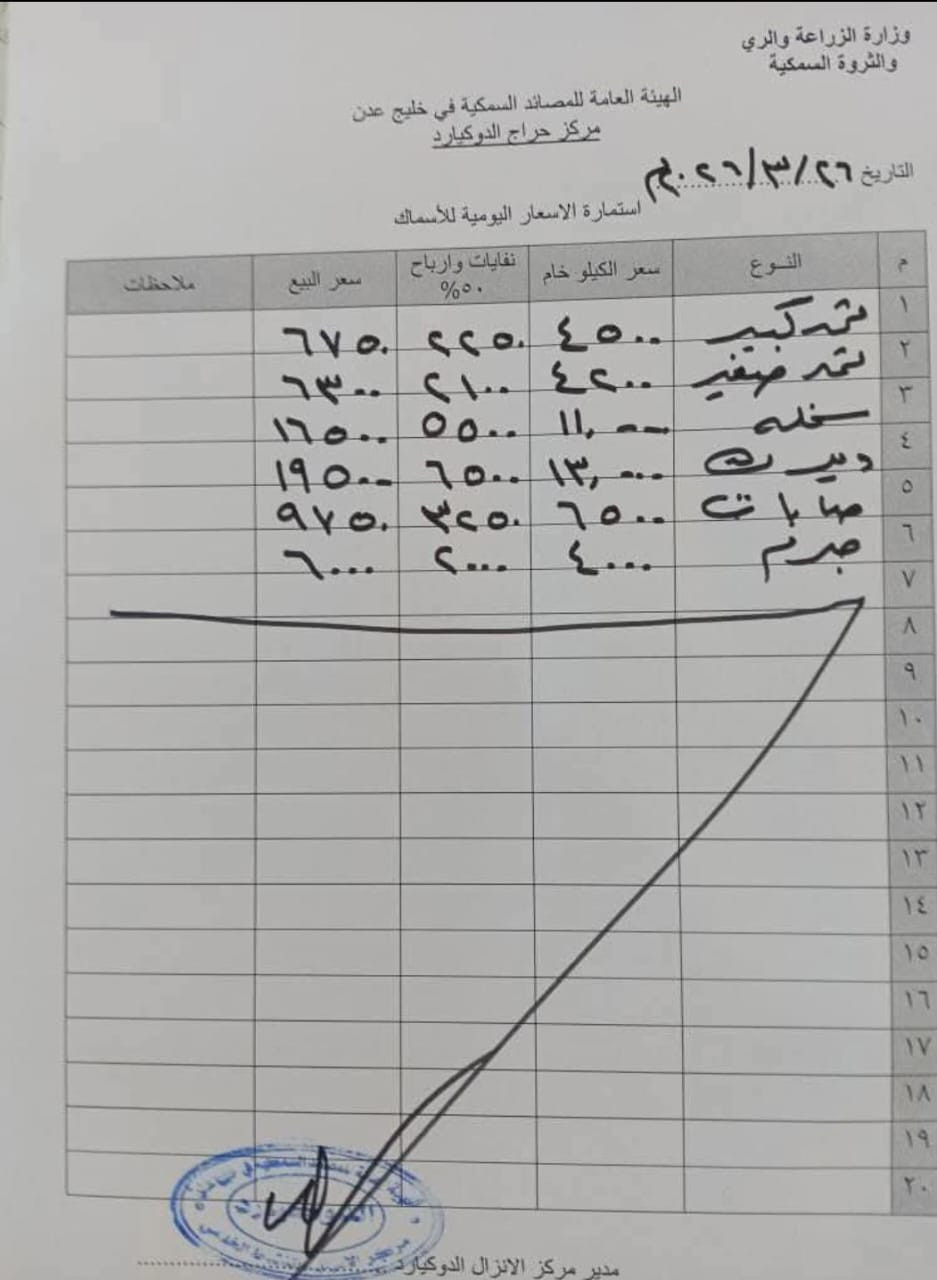 وزارة الزراعة والري
والثروة السمكية
الهيئة العامة للمصائد السمكية في خليج عدن
مركز حراج الدوكيارد
التاريخ ٢٦/٣/٢٠٢٦م
استمارة الاسعار اليومية للأسماك
م النوع سعر الكيلو خام نفايات وارباح ٥٠% سعر البيع ملاحظات
١ ثمد كبير ٤٥٠٠ ٢٢٥٠ ٦٧٥٠
٢ ثمد صغير ٤٢٠٠ ٢١٠٠ ٦٣٠٠
٣ سخله ١١,٠٠٠ ٥٥٠٠ ١٦٥٠٠
٤ ديرك ١٣,٠٠٠ ٦٥٠٠ ١٩٥٠٠
٥ ٦٥٠٠ ٣٢٥٠ ٩٧٥٠
٦ ٤٠٠٠ ٢٠٠٠ ٦٠٠٠
٧
٨
٩
١٠
١١
١٢
١٣
١٤
١٥
١٦
١٧
١٨
١٩
٢٠
مدير مركز الانزال الدوكيارد